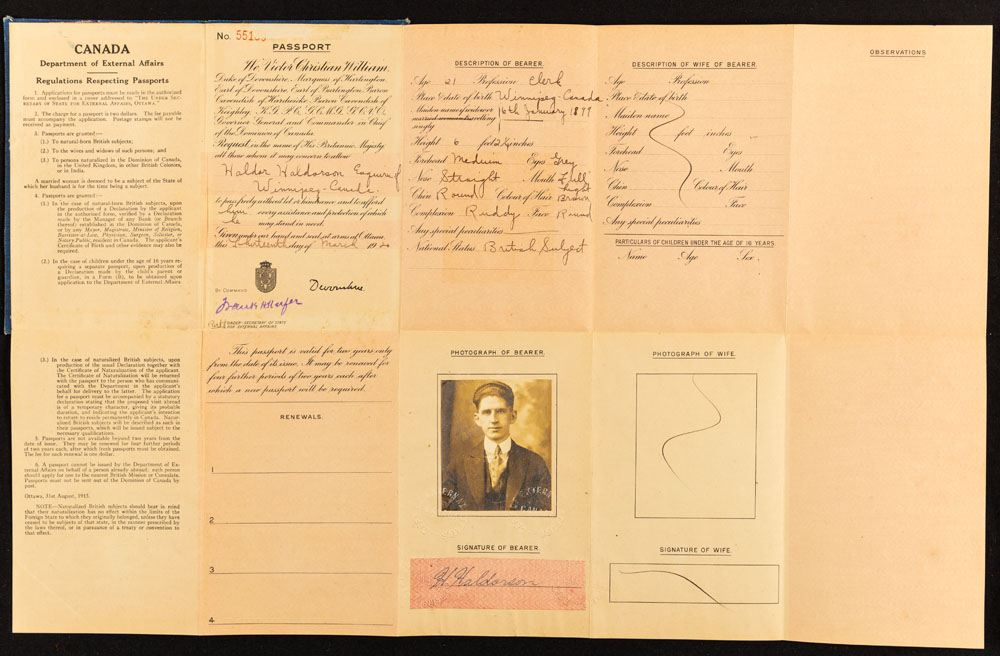 CANADA
Department of External Affairs
Regulations Respecting Passports
1. Applications for passports must be made in the authorized
form and enclosed in a cover addressed to "THE UNDER SEC-
RETARY OF STATE FOR EXTERNAL AFFAIRS, OTTAWA."
2. The charge for a passport is two dollars. The fee payable
must accompany the application. Postage stamps will not be
received as payment.
3. Passports are granted:—
(1.) To natural-born British subjects;
(2.) To the wives and widows of such persons; and
(3.) To persons naturalized in the Dominion of Canada,
in the United Kingdom, in other British Colonies,
or in India.
A married woman is deemed to be a subject of the State of
which her husband is for the time being a subject.
4. Passports are granted:—
(1.) In the case of natural-born British subjects, upon
the production of a Declaration by the applicant
in the authorized form, verified by a Declaration
made by the Manager of any Bank (or Branch
thereof) established in the Dominion of Canada,
or by any Mayor, Magistrate, Minister of Religion,
Barrister-at-Law, Physician, Surgeon, Solicitor, or
Notary Public, resident in Canada. The applicant's
Certificate of Birth and other evidence may also be
required.
(2.) In the case of children under the age of 16 years re-
quiring a separate passport, upon production of
a Declaration made by the child's parent or
guardian, in a Form (B), to be obtained upon
application to the Department of External Affairs.
(3.) In the case of naturalized British subjects, upon
production of the usual Declaration together with
the Certificate of Naturalization of the applicant.
The Certificate of Naturalization will be returned
with the passport to the person who has communi-
cated with the Department in the applicant's
behalf for delivery to the latter. The application
for a passport must be accompanied by a statutory
declaration stating that the proposed visit abroad
is of a temporary character, giving its probable
duration, and indicating the applicant's intention
to return to reside permanently in Canada. Natur-
alized British subjects will be described as such in
their passports, which will be issued subject to the
necessary qualifications.
5. Passports are not available beyond two years from the
date of issue. They may be renewed for four further periods
of two years each, after which fresh passports must be obtained.
The fee for each renewal is one dollar.
6. A passport cannot be issued by the Department of Ex-
ternal Affairs on behalf of a person already abroad; such person
should apply for one to the nearest British Mission or Consulate.
Passports must not be sent out of the Dominion of Canada by
post.
Ottawa, 31st August, 1915.
NOTE—Naturalized British subjects should bear in mind
that their naturalization has no effect within the limits of the
Foreign State to which they originally belonged, unless they have
ceased to be subjects of that state, in the manner prescribed by
the laws thereof, or in pursuance of a treaty or convention to
that effect.
No.
PASSPORT
We, Victor Christian William,
Duke of Devonshire, Marquess of Hartington,
Earl of Devonshire, Earl of Burlington, Baron
Cavendish of Hardwicke, Baron Cavendish of
Keighley, K.G., P.C., G.C.M.G., G.C.V.O.,
Governor General and Commander in Chief
of the Dominion of Canada
Request, in the name of His Britannic Majesty
all those whom it may concern to allow
Haldor Haldorson Esquire of
Winnipeg-Canada.
to pass freely without let or hindrance and to afford
him every assistance and protection of which
he may stand in need.
Given under our hand and seal at arms at Ottawa,
this thirteenth day of March 1920
BY COMMAND
Devonshire
UNDER-SECRETARY OF STATE
FOR EXTERNAL AFFAIRS
This passport is valid for two years only
from the date of its issue. It may be renewed for
four further periods of two years each after
which a new passport will be required.
RENEWALS.
1
2
3
4
DESCRIPTION OF BEARER.
Age 21 Profession Clerk
Place & date of birth Winnipeg-Canada
Maiden name if widow or 16th January 1899
married woman travelling
singly
Height 6 feet 2¼ inches
Forehead Medium Eyes Grey
Nose Straight Mouth Full
Chin Round Colour of Hair Light Brown
Complexion Ruddy Face Round
Any special peculiarities
National Status British Subject
PHOTOGRAPH OF BEARER.
SIGNATURE OF BEARER.
H. Haldorson
DESCRIPTION OF WIFE OF BEARER.
Age Profession
Place & date of birth
Maiden name
Height feet inches
Forehead Eyes
Nose Mouth
Chin Colour of Hair
Complexion Face
Any special peculiarities
PARTICULARS OF CHILDREN UNDER THE AGE OF 16 YEARS
Name Age Sex
PHOTOGRAPH OF WIFE.
SIGNATURE OF WIFE.
OBSERVATIONS